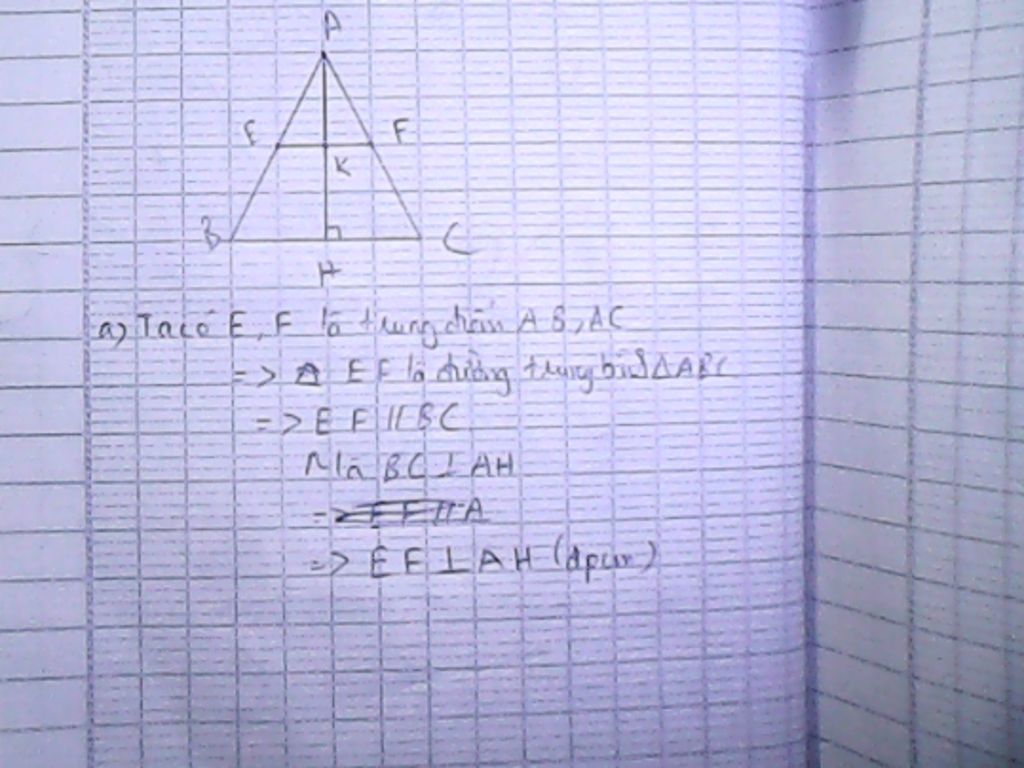 A
E
F
K
B
C
H
a) Ta có E, F là trung điểm AB, AC
=> EF là đường trung bình ΔABC
=> EF // BC
Mà BC ⊥ AH
=> EF // A
=> EF ⊥ AH (đpcm)